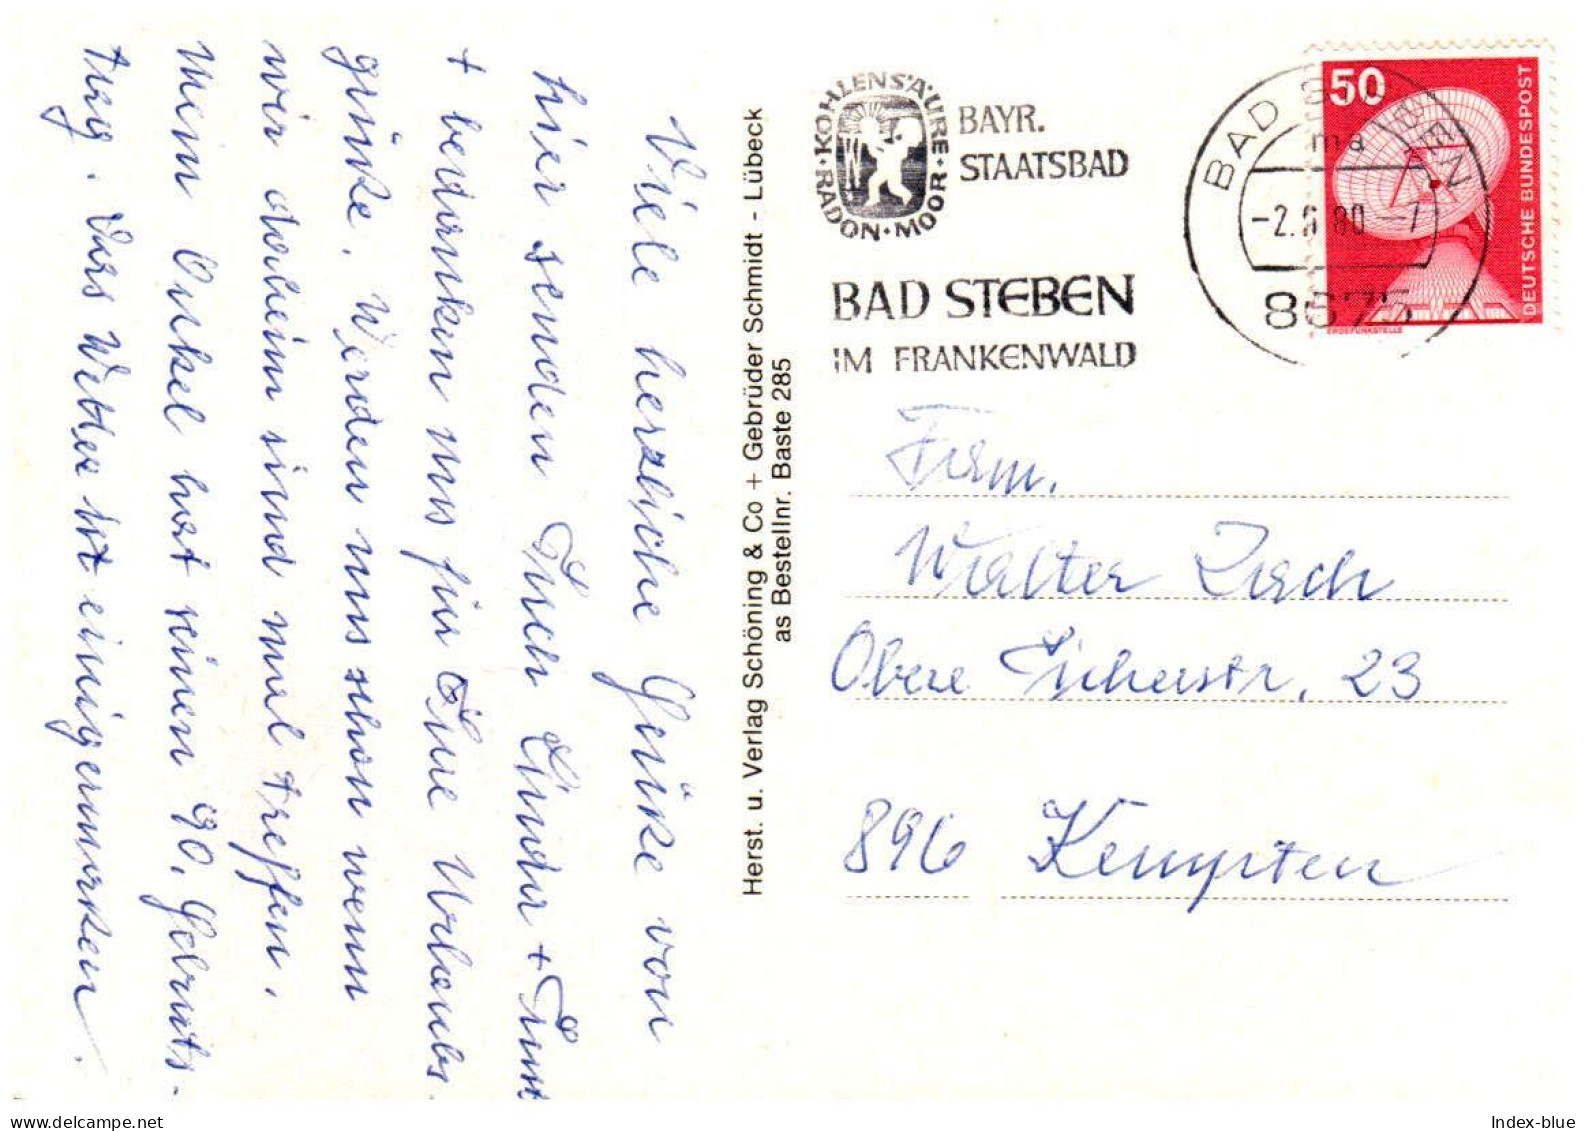 Viele herzliche Grüße von
hier senden Euch Gundi + Toni
+ bedanken uns für Eure Urlaubs
grüße. Werden uns schon wenn
wir daheim sind mal treffen.
Mein Onkel hat seinen 90. Geburts-
tag. Das Wetter ist einigermaßen.
Herst. u. Verlag Schöning & Co + Gebrüder Schmidt - Lübeck
as Bestellnr. Baste 285
KOHLENSÄURE · MOOR · RADON ·
BAYR.
STAATSBAD
BAD STEBEN
IM FRANKENWALD
BAD STEBEN
ma
-2.6.80.-7
8675
50
DEUTSCHE BUNDESPOST
ERDEFUNKSTELLE
Fam.
Walter Zach
Obere Eicherstr. 23
896 Kempten
delcampe.net
Index-blue